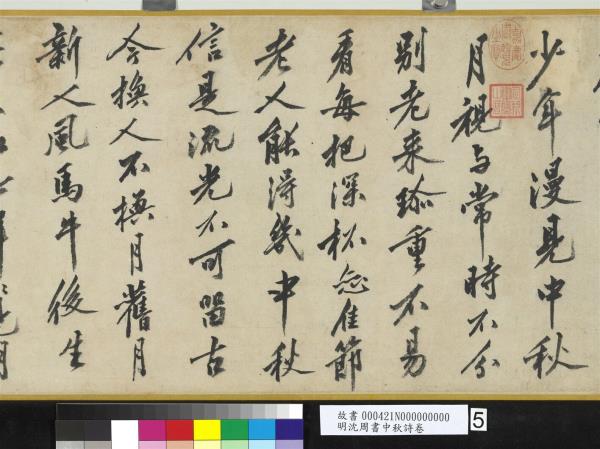 少年漫見中秋
月視与常時不分
別老來珎重不易
看每把深杯念佳節
老人能得幾中秋
信是流光不可留古
今換人不換月舊月
新人風馬牛後生
故書 000421N000000000
明沈周書中秋詩卷
5